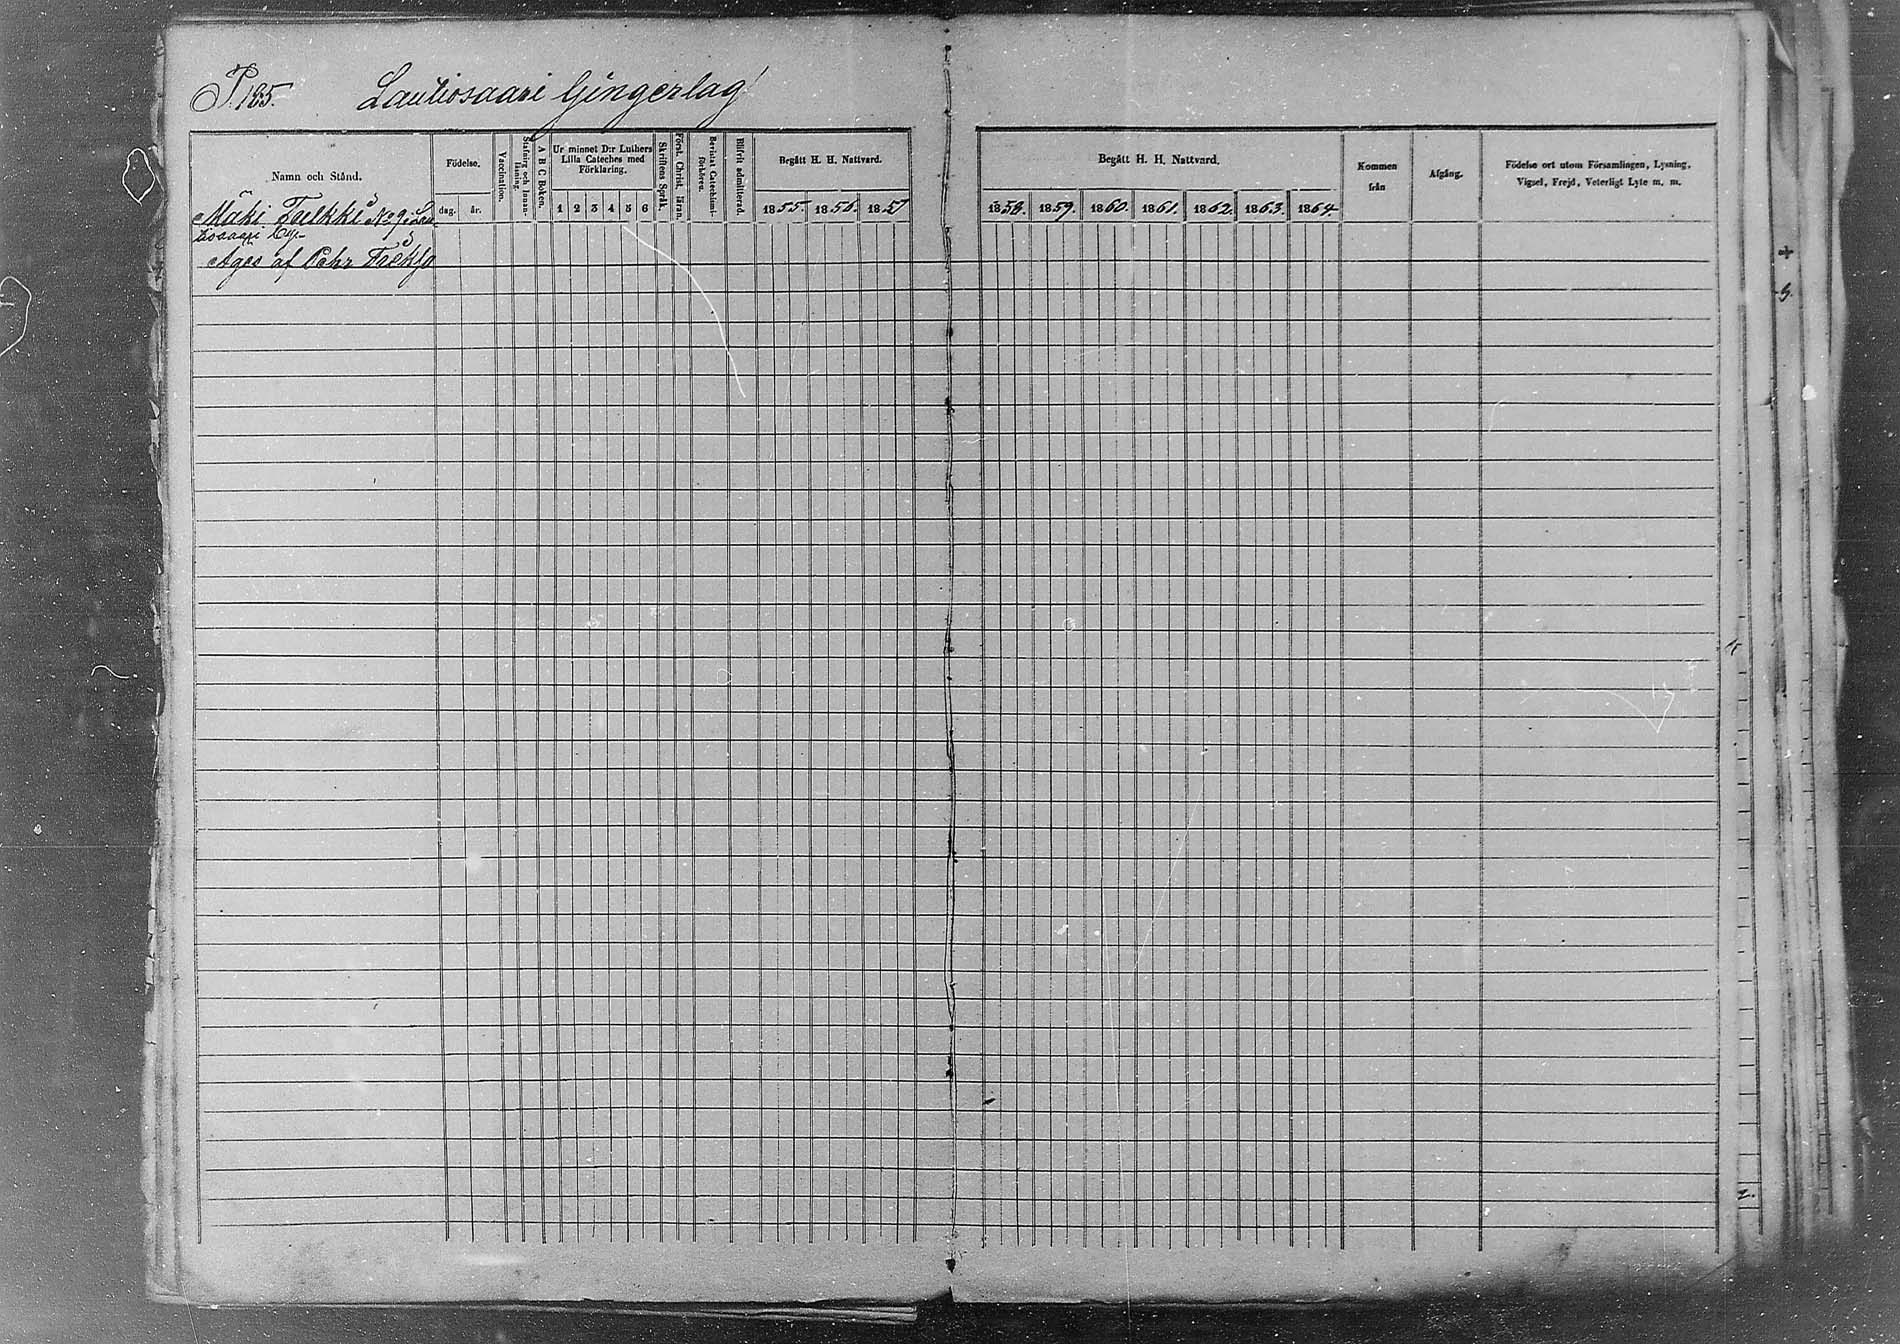 P. 185. Lautiosaari Gingerlag
Namn och Stånd.
Födelse.
dag. år.
Vaccination.
Stafning och Innan-
läsning.
A B C Boken.
Ur minnet D:r Luthers
Lilla Cateches med
Förklaring.
1 2 3 4 5 6
Skriftens Språk.
Först. Christ. läran.
Bevistat Catechismi-
förhören.
Blifvit admitterad.
Begått H. H. Nattvard.
1855. 1856. 1857
Begått H. H. Nattvard.
1858. 1859. 1860. 1861. 1862. 1863. 1864.
Kommen
från
Afgång.
Födelse ort utom Församlingen, Lysning,
Vigsel, Frejd, Veterligt Lyte m. m.
Mäki No 9. Lau
tiosaari By.
Äges af Pehr